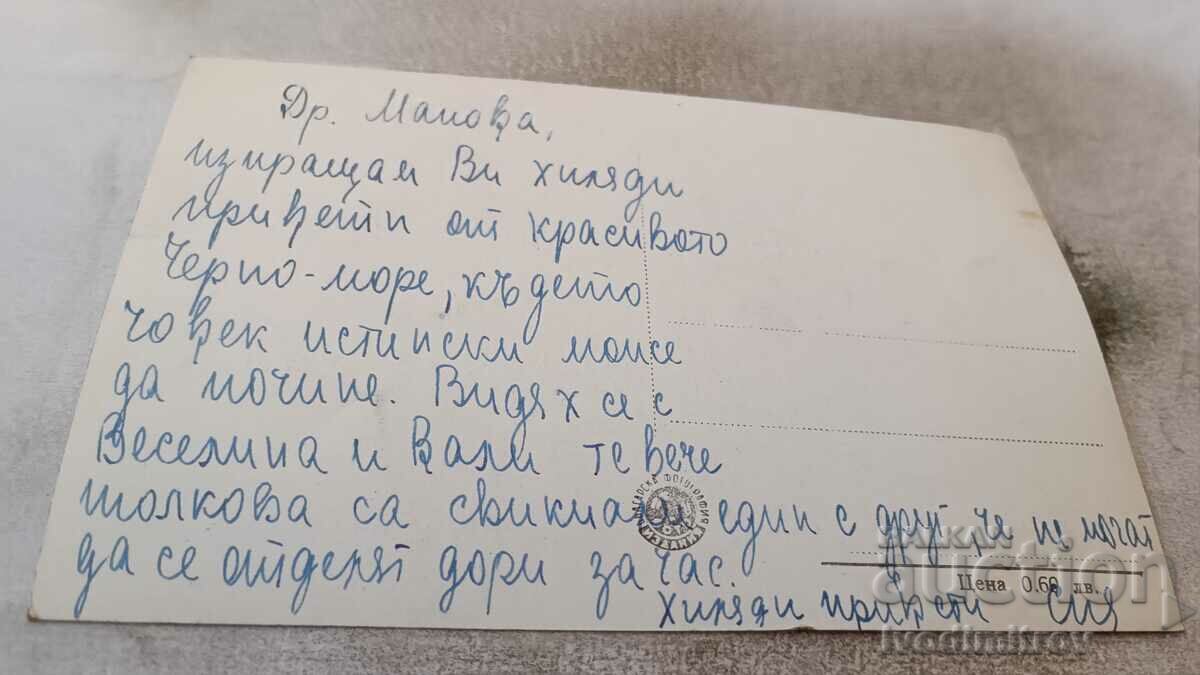 Др. Манова,
изпращам Ви хиляди
привети от красивото
Черно-море, където
човек истински може
да почине. Видях се с
Веселина и Вали те вече
толкова са свикнали един с друг че не могат
да се отделят дори за час.
Цена 0.60 лв.
хиляди привети Сия
БЪЛГАРСКА ФОТОГРАФИЯ
ИЗДАНИЕ
БАЛКАН
auction
ivodimitrov